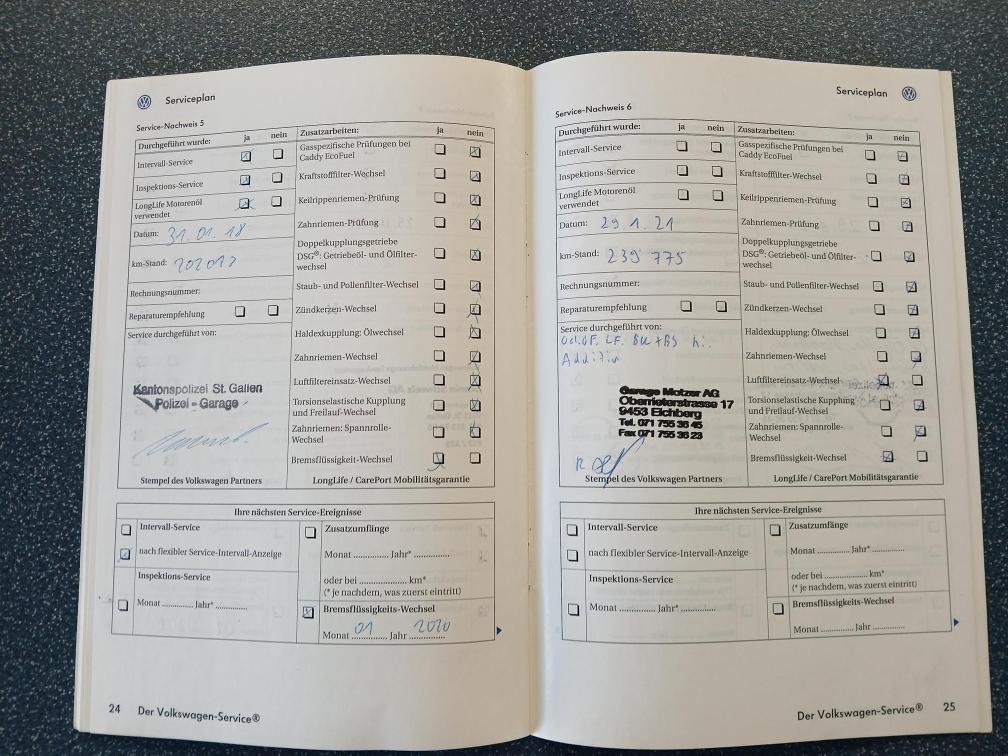 Serviceplan
Service-Nachweis 5
Durchgeführt wurde: ja nein
Intervall-Service
Inspektions-Service
LongLife Motorenöl
verwendet
Datum: 31.01.18
km-Stand: 202013
Rechnungsnummer:
Reparaturempfehlung
Service durchgeführt von:
Kantonspolizei St. Gallen
Polizei - Garage
Stempel des Volkswagen Partners
Zusatzarbeiten: ja nein
Gasspezifische Prüfungen bei
Caddy EcoFuel
Kraftstofffilter-Wechsel
Keilrippenriemen-Prüfung
Zahnriemen-Prüfung
Doppelkupplungsgetriebe
DSG®: Getriebeöl- und Ölfilter-
wechsel
Staub- und Pollenfilter-Wechsel
Zündkerzen-Wechsel
Haldexkupplung: Ölwechsel
Zahnriemen-Wechsel
Luftfiltereinsatz-Wechsel
Torsionselastische Kupplung
und Freilauf-Wechsel
Zahnriemen: Spannrolle-
Wechsel
Bremsflüssigkeit-Wechsel
LongLife / CarePort Mobilitätsgarantie
Ihre nächsten Service-Ereignisse
Intervall-Service
nach flexibler Service-Intervall-Anzeige
Inspektions-Service
Monat ............. Jahr* .............
Zusatzumfänge
Monat ............. Jahr* .............
oder bei .................... km*
(* je nachdem, was zuerst eintritt)
Bremsflüssigkeits-Wechsel
Monat 01 Jahr 2020
24 Der Volkswagen-Service®
Serviceplan
Service-Nachweis 6
Durchgeführt wurde: ja nein
Intervall-Service
Inspektions-Service
LongLife Motorenöl
verwendet
Datum: 29.1.21
km-Stand: 239 775
Rechnungsnummer:
Reparaturempfehlung
Service durchgeführt von:
LF. hi.
Additiv
Garage Motzer AG
Oberrieterstrasse 17
9453 Eichberg
Tel. 071 755 36 45
Fax 071 755 36 23
Stempel des Volkswagen Partners
Zusatzarbeiten: ja nein
Gasspezifische Prüfungen bei
Caddy EcoFuel
Kraftstofffilter-Wechsel
Keilrippenriemen-Prüfung
Zahnriemen-Prüfung
Doppelkupplungsgetriebe
DSG®: Getriebeöl- und Ölfilter-
wechsel
Staub- und Pollenfilter-Wechsel
Zündkerzen-Wechsel
Haldexkupplung: Ölwechsel
Zahnriemen-Wechsel
Luftfiltereinsatz-Wechsel
Torsionselastische Kupplung
und Freilauf-Wechsel
Zahnriemen: Spannrolle-
Wechsel
Bremsflüssigkeit-Wechsel
LongLife / CarePort Mobilitätsgarantie
Ihre nächsten Service-Ereignisse
Intervall-Service
nach flexibler Service-Intervall-Anzeige
Inspektions-Service
Monat ............. Jahr* .............
Zusatzumfänge
Monat ............. Jahr* .............
oder bei .................... km*
(* je nachdem, was zuerst eintritt)
Bremsflüssigkeits-Wechsel
Monat ............. Jahr .............
Der Volkswagen-Service® 25